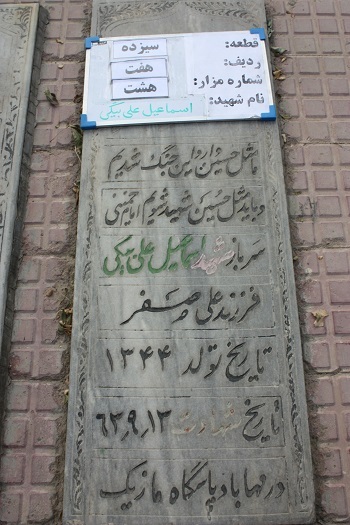 قطعه: سیزده
ردیف: هفت
شماره مزار: هشت
نام شهید: اسماعیل علی بیگی
ما مثل حسین وارد این جنگ شدیم
و باید مثل حسین شهید شویم امام خمینی
سرباز شهید اسماعیل علی بیگی
فرزند علی صفر
تاریخ تولد ۱۳۴۴
تاریخ شهادت ۶۲٫۹٫۱۲
در مهاباد پاسگاه مازیک